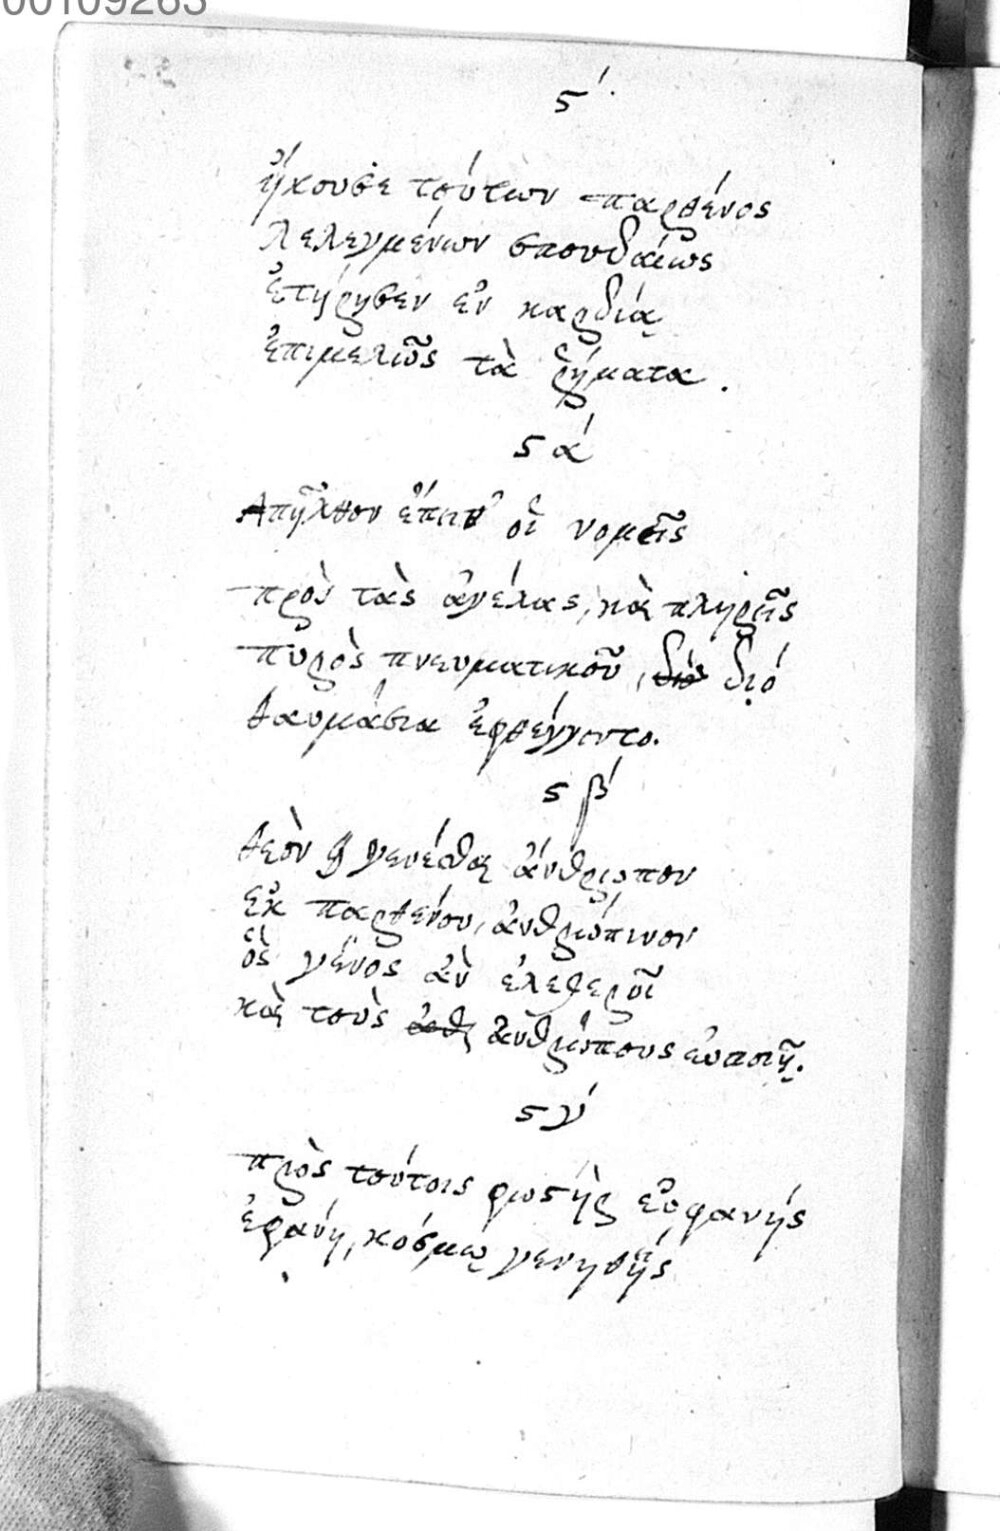 00109263
ϛ΄.
ἤκουσε τούτων παρθένος
λελεγμένων σπουδαίως
ἐτήρησεν ἐν καρδίᾳ
ἐπιμελιῶς τὰ ῥήματα.
ϛ ά
Ἀπῆλθον οἱ νομεῖς
πρὸς τὰς ἀγέλας, καὶ πληρεῖς
πυρὸς πνευματικοῦ, διὸ
θαυμάσια ἐφθέγγοντο.
ϛ β΄
θεὸν γενέσθαι ἄνθρωπον
ἐκ παρθένου, ἀνθρώπινον
ὃς γένος ἂν ἐλεφεροῖ
καὶ τοὺς ἀνθρώπους εὐποιῇ.
ϛ γ΄
πρὸς τούτοις φωστὴρ εὐφανής
ἐφάνη, κόσμῳ γενηθῆς